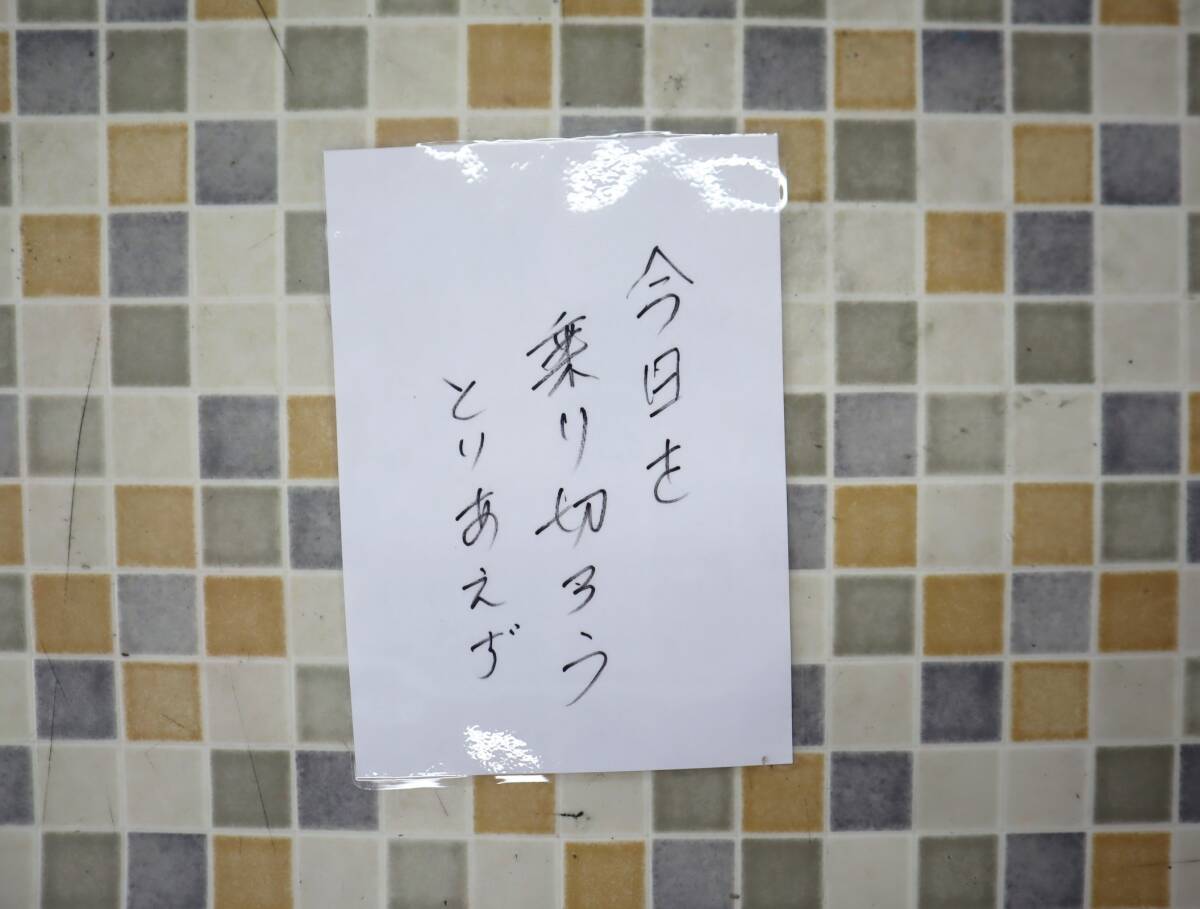 今日を
乗り切ろう
とりあえず